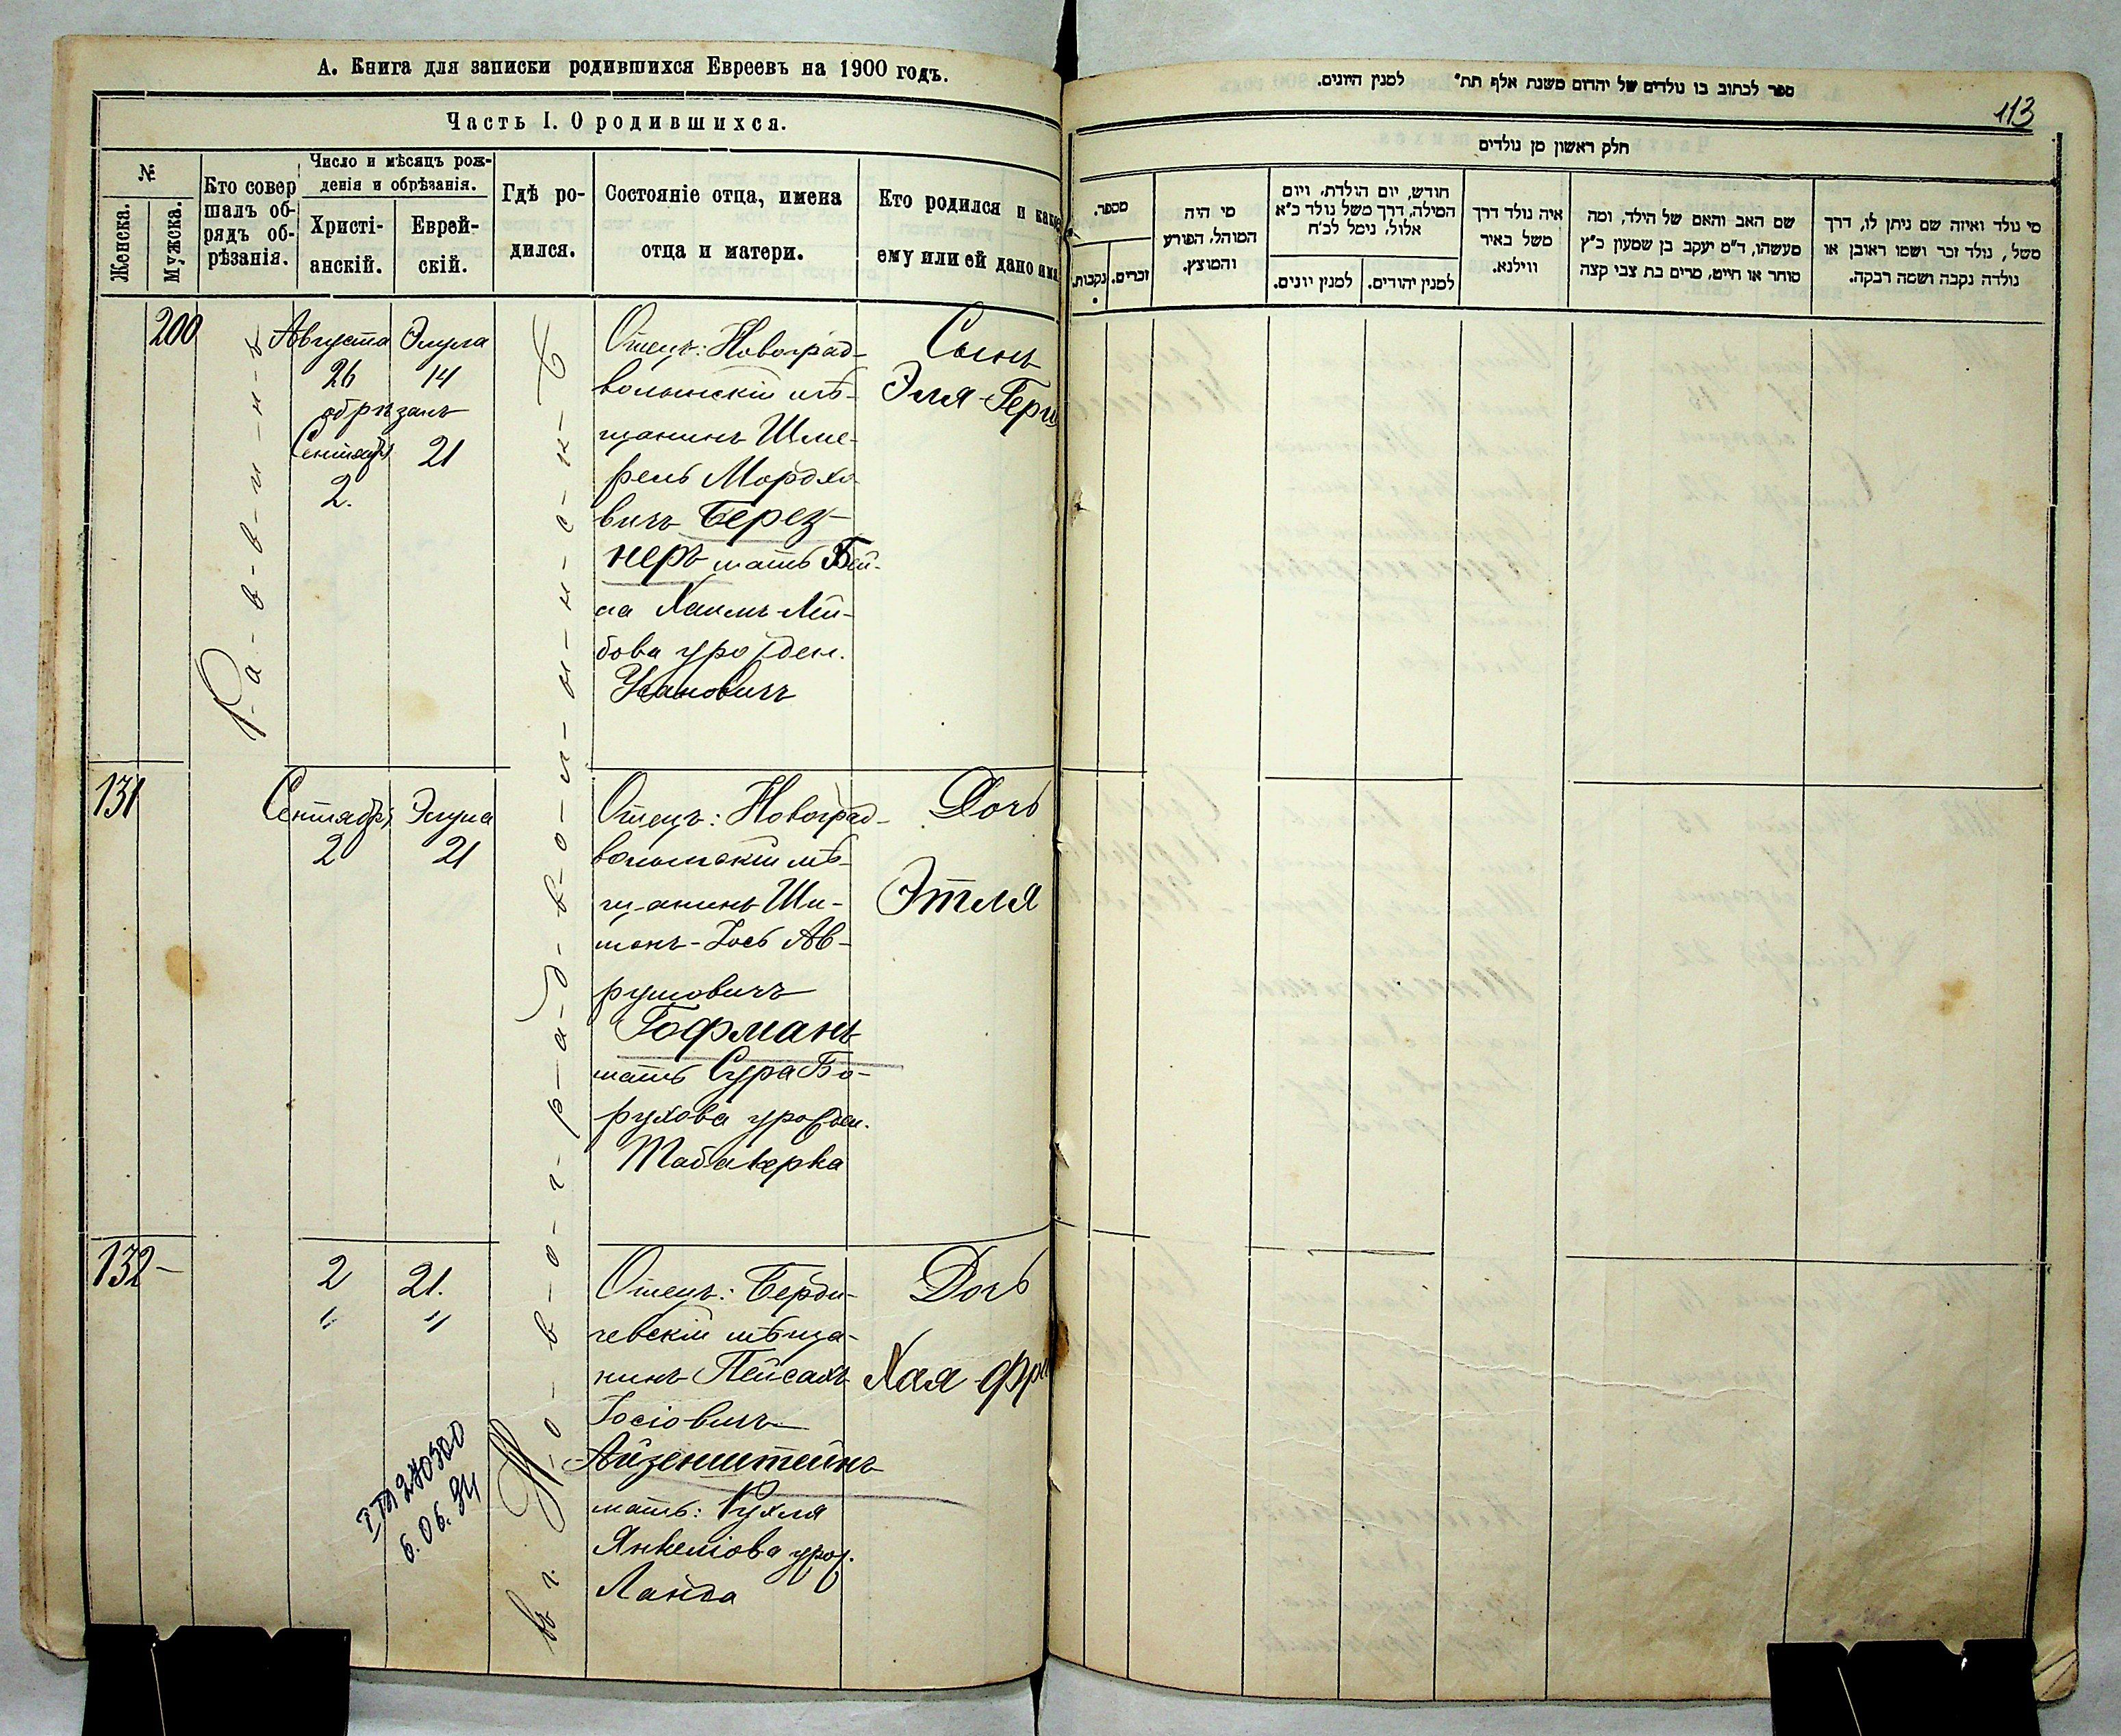 А. Книга для записки родившихся Евреевъ на 1900 годъ.
Часть I. О родившихся.
№
Женска.
Мужска.
Кто совер
шалъ об-
рядъ об-
рѣзанія.
Число и мѣсяцъ рож-
денія и обрѣзанія.
Христі-
анскій.
Еврей-
скій.
Гдѣ ро-
дился.
Состояніе отца, имена
отца и матери.
Кто родился и какое
ему или ей дано имя
200
Р-а-в-в-и-н-ъ
Августа
26
обрѣзанъ
Сентября
2.
Элула
14
21
Въ г. Н-о-в-о-г-р-а-д-в-о-л-ы-н-с-к-ѣ
Отецъ: Новоград-
волынскій мѣ-
щанинъ Шме-
рель Мордко-
вичъ Берез-
неръ мать Бей-
ла Хаимъ-Лей-
бова урожден.
Сынъ
Эля-Герш
131
Сентября
2
Элула
21
Отецъ: Новоград-
волынскій мѣ-
щанинъ Ши-
монъ-Іось Ав-
румовичъ
Гофманъ
мать Сура Бо-
рухова урожден.
Табакерка
Дочь
Этля
132
2
"
21.
"
Отецъ: Берди-
чевскій мѣща-
нинъ Пейсахъ
Іосіовичъ
Айзенштейнъ
мать: Рухля
Янкеліова урож.
Ланда
Дочь
Хая-Фре
270300
6.06.94
ספר לכתוב בו נולדים של יהדום משנת אלף תת״ למנין היונים.
113
חלק ראשון מן נולדים
מספר.
נקבות.
זכרים.
מי היה
המוהל, הפורע
והמוצץ.
חודש, יום הולדת, ויום
המילה, דרך משל נולד כ״א
אלול, נימל לכ״ח
למנין יונים.
למנין יהודים.
איה נולד דרך
משל באיר
ווילנא.
שם האב והאם של הילד, ומה
מעשהו, ד״מ יעקב בן שמעון כ״ץ
סוחר או חייט, מרים בת צבי קצה
מי נולד ואיזה שם ניתן לו, דרך
משל, נולד זכר ושמו ראובן או
נולדה נקבה ושמה רבקה.